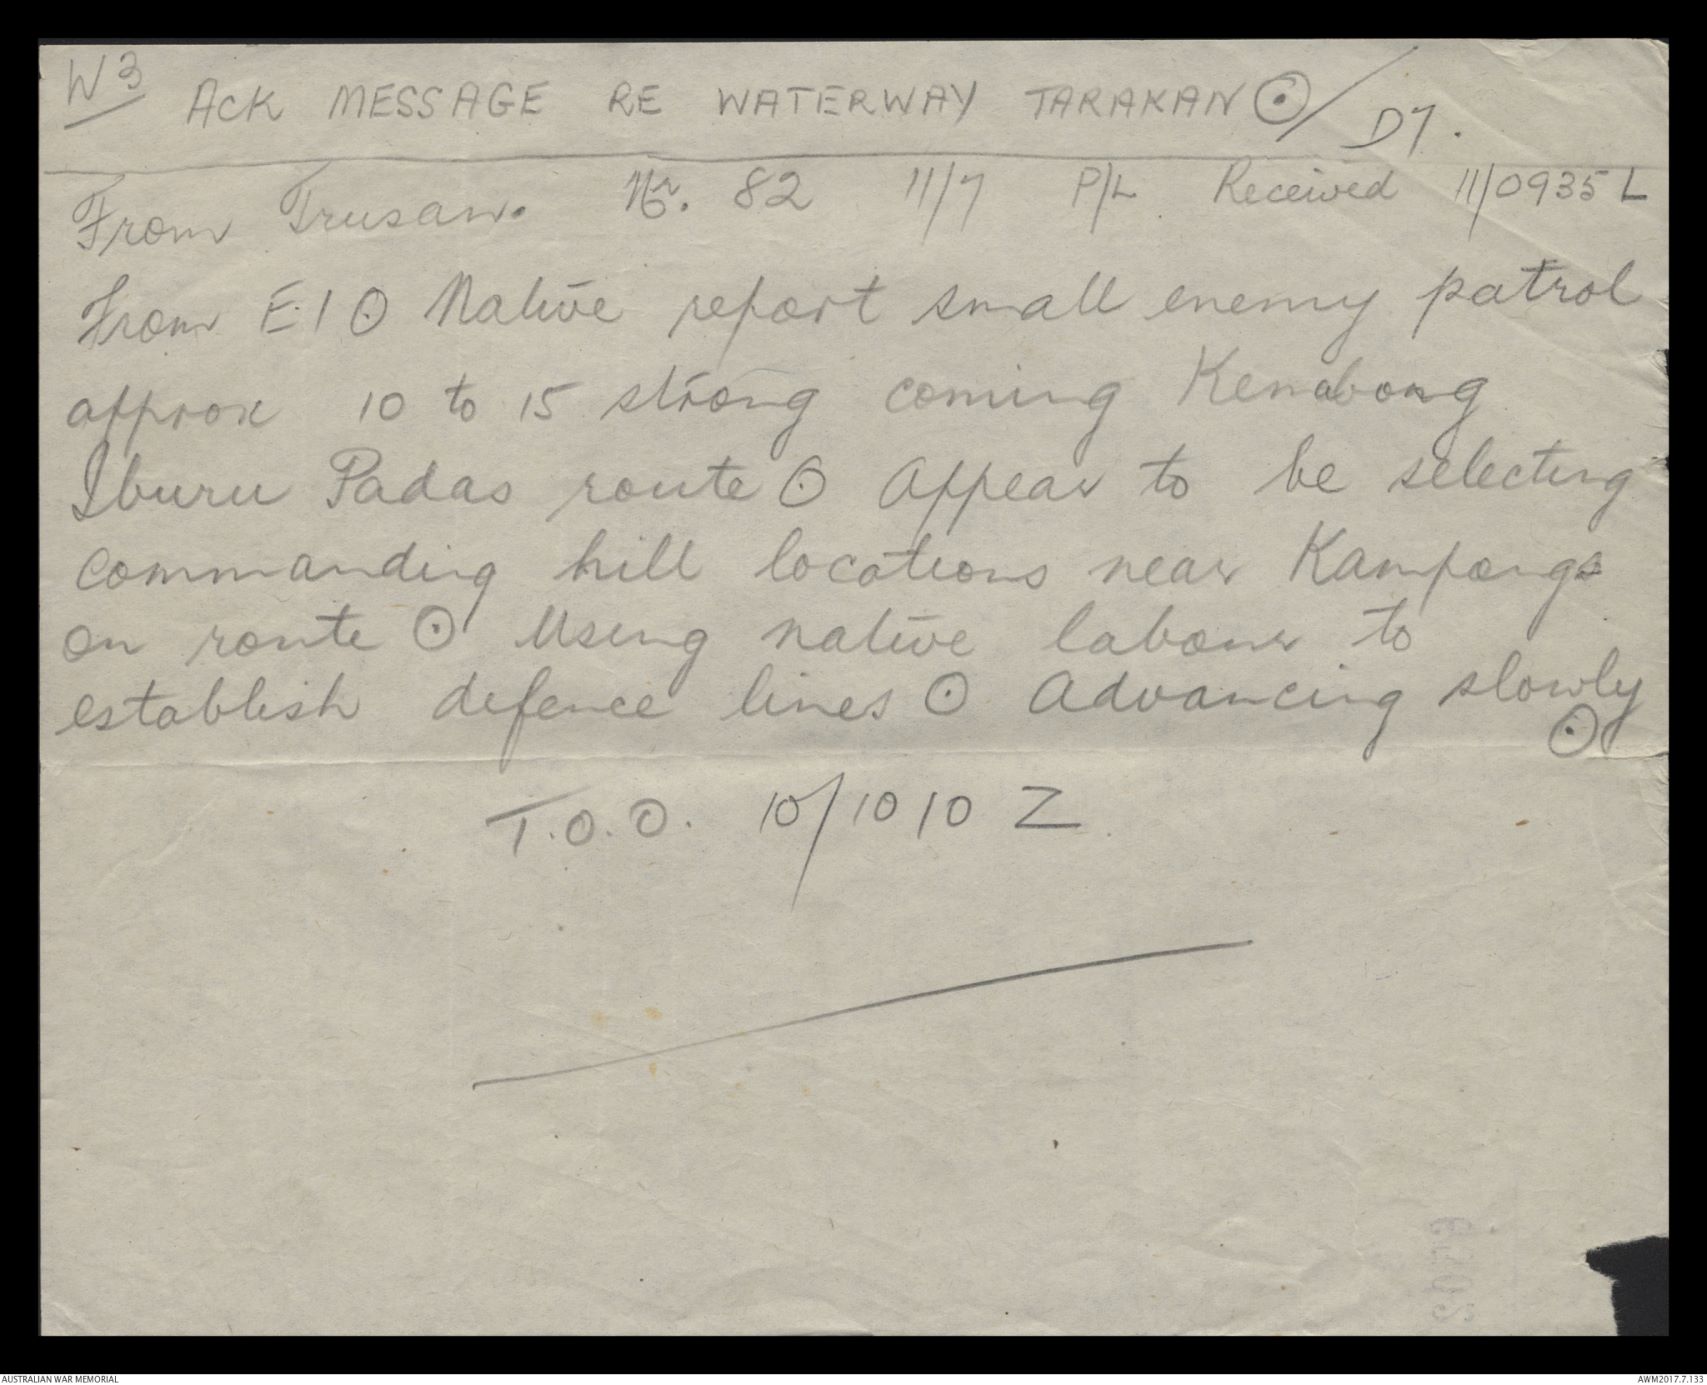 W3 ACK MESSAGE RE WATERWAY TARAKAN ⊙/ D7.
From Trusan. Nr. 82 11/7 P/L Received 11/0935 L
From E.1 ⊙ Native report small enemy patrol
approx 10 to 15 strong coming Kemabong
Iburu Padas route ⊙ Appear to be selecting
commanding hill locations near Kampongs
on route ⊙ Using native labour to
establish defence lines ⊙ Advancing slowly
⊙
T.O.O. 10/1010 Z
AUSTRALIAN WAR MEMORIAL
AWM2017.7.133